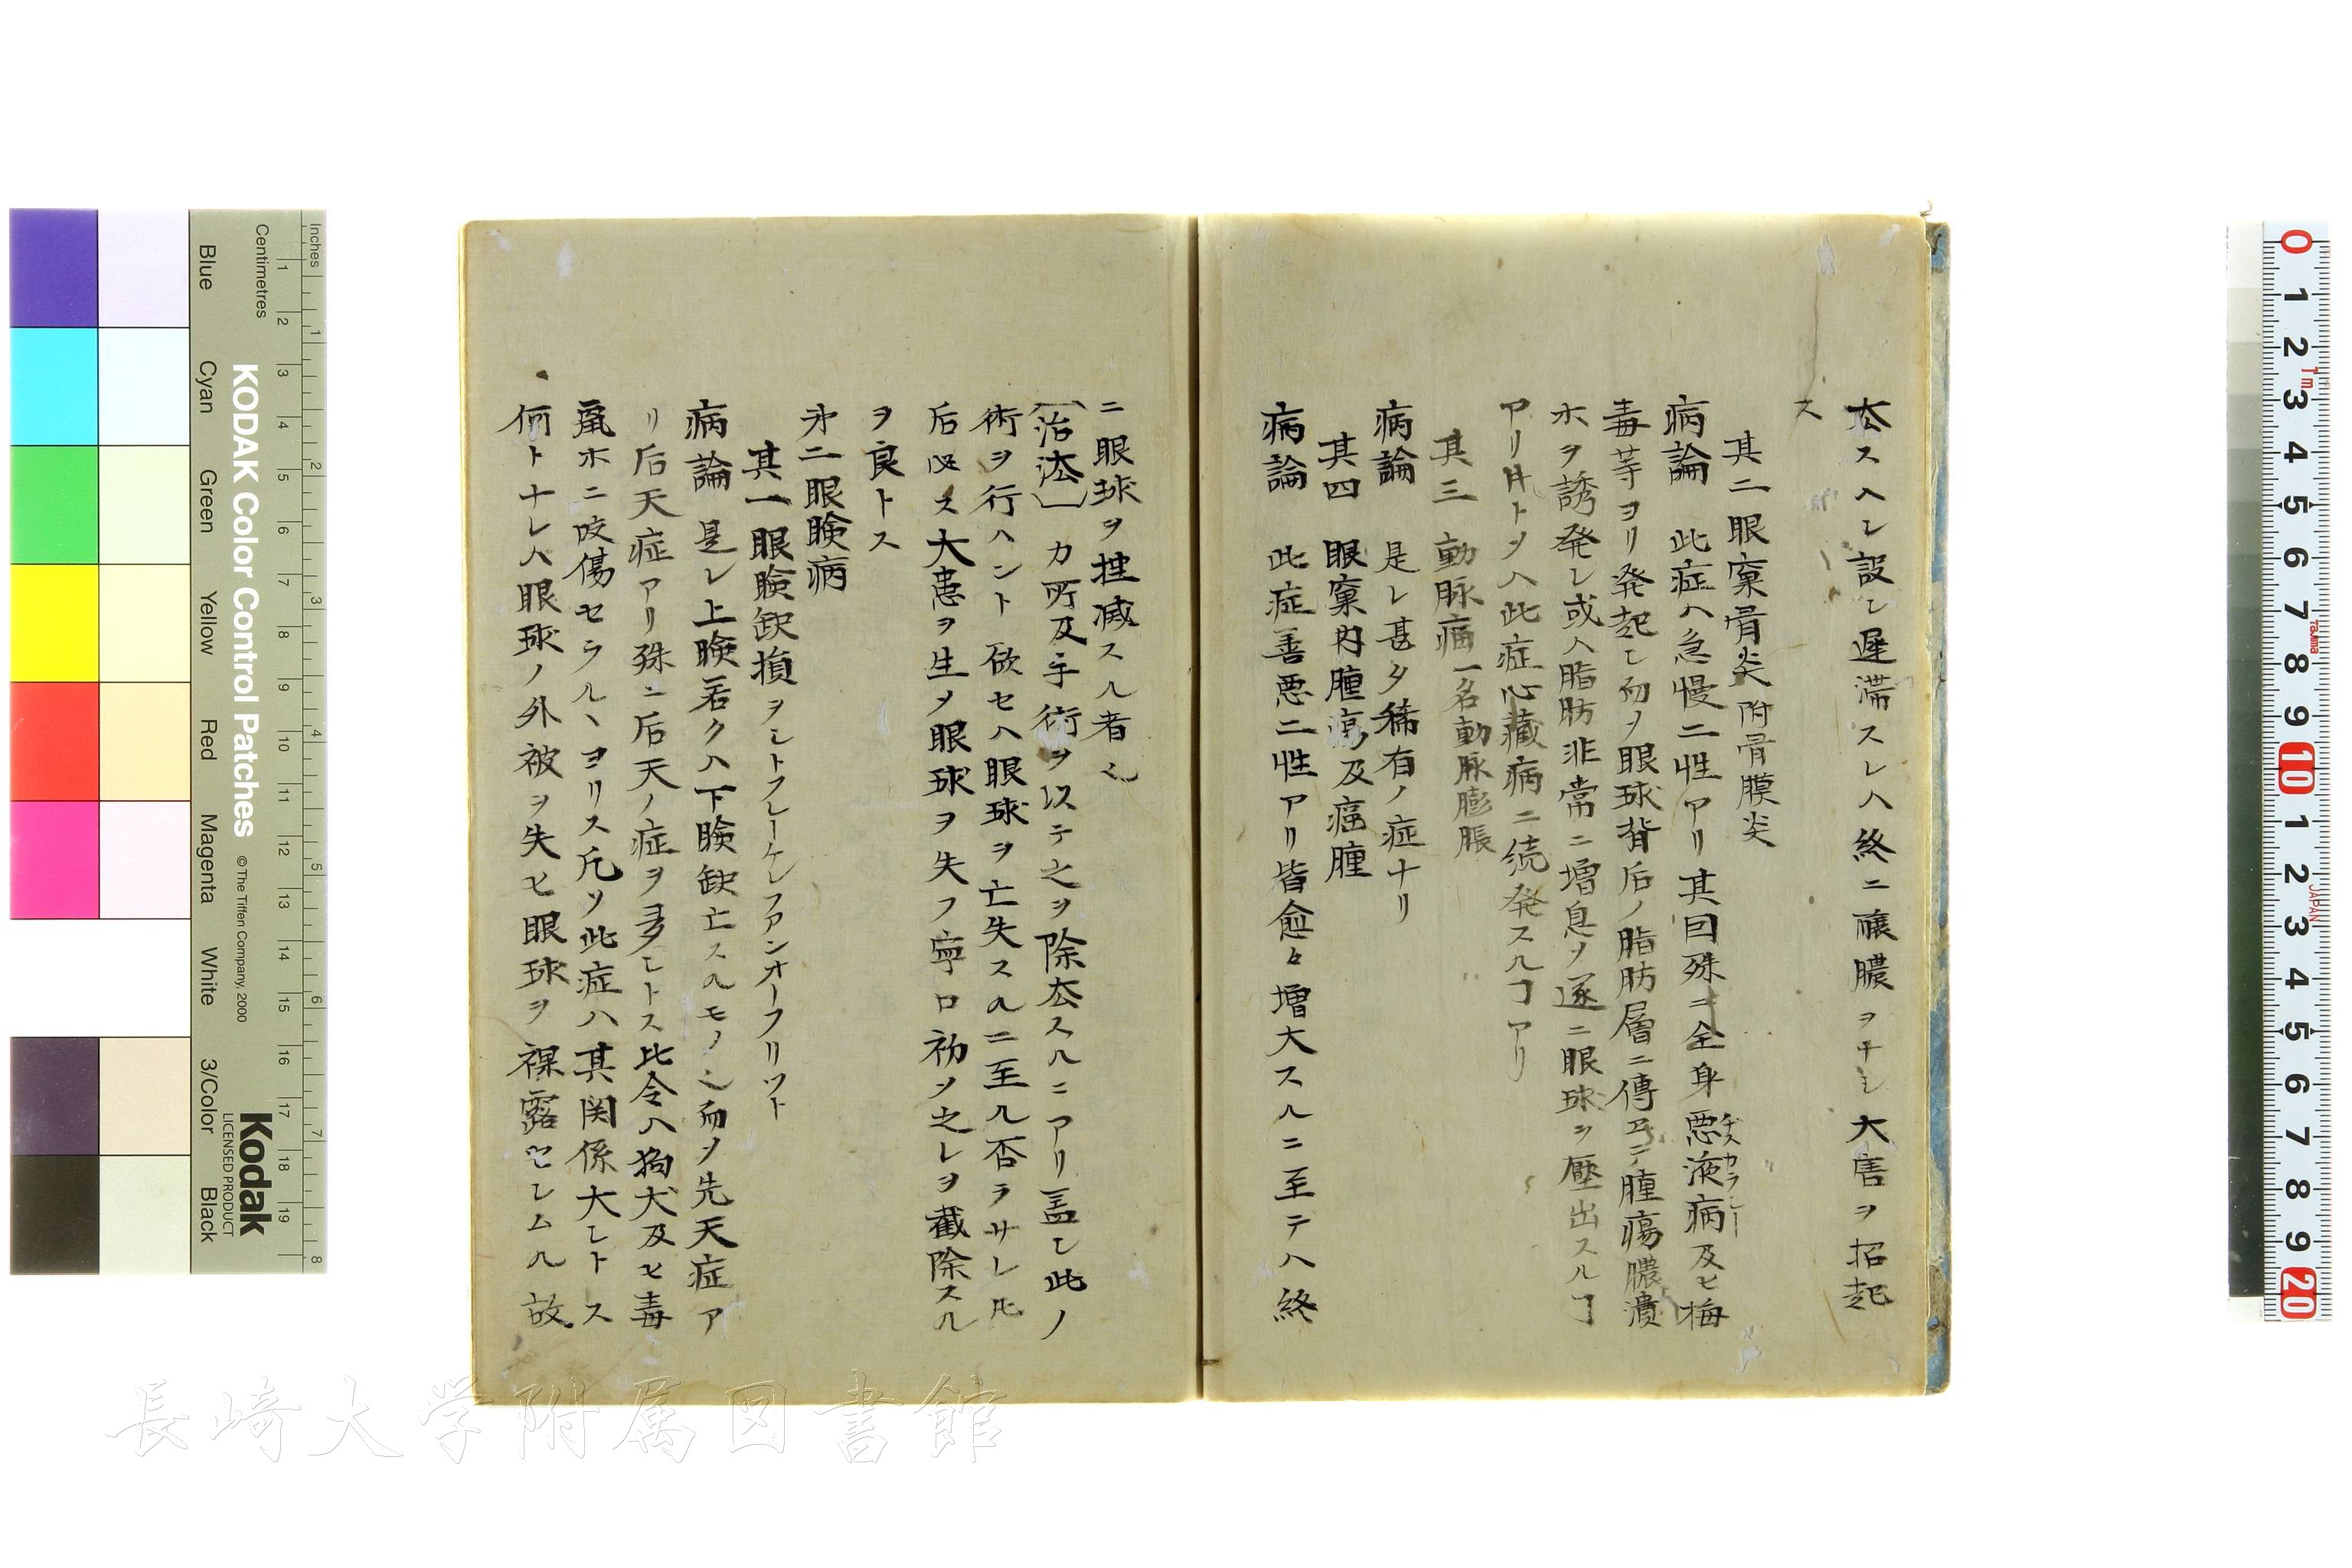 厺スヘシ設シ遅滞スレハ終ニ醸膿ヲナシ大害ヲ招起
ス
其二眼窠骨炎附骨膜炎
病論 此症ハ急慢二性アリ其因殊ニ全身悪液病及ヒ梅
毒等ヨリ発起シ而ヲ眼球背后ノ脂肪層ニ傳 腫瘍膿潰
ホヲ誘発シ或ハ脂肪非常ニ増息ヲ遂ニ眼球ヲ壓出スルヿ
アリ ハ此症心藏病ニ続発スルヿアリ
其三 動脉瘤一名動脉膨脹
病論 是レ甚タ稀有ノ症ナリ
其四 眼窠内腫瘍及癌腫
病論 此症善悪二性アリ皆愈々増大スルニ至テハ終
ニ眼球ヲ挫滅スル者
〔治法〕カ所及手術ヲ以テ之ヲ除厺スルニアリ盖シ此ノ
術ヲ行ハント欲セハ眼球ヲ亡失スルニ至ル否ラサレ𪜈
后必ス大患ヲ生メ眼球ヲ失フ寧ロ初ヲ之レヲ截除スル
ヲ良トス
第二眼瞼病
其一眼瞼缺損ヲントフレーケレファンオーフリット
病論 是レ上瞼若クハ下瞼缺亡スルモノ 而ヲ先天症ア
リ后天症アリ殊ニ后天ノ症ヲ多シトス比令ハ狗犬及ヒ毒
ホニ咬傷セラルヽヨリス凡ソ此症ハ其関係大シトス
何トナレハ眼球ノ外被ヲ失ヒ眼球ヲ裸露セシムル故
Inches
Centimetres
Blue Cyan Green Yellow Red Magenta White 3/Color Black
KODAK Color Control Patches
© The Tiffen Company, 2000
Kodak
LICENSED PRODUCT
1 2 3 4 5 6 7 8 9 10 11 12 13 14 15 16 17 18 19
1 2 3 4 5 6 7 8
0 1 2 3 4 5 6 7 8 9 10 1 2 3 4 5 6 7 8 9 20
1m
TaJIMa
JAPAN
長崎大学附属図書館